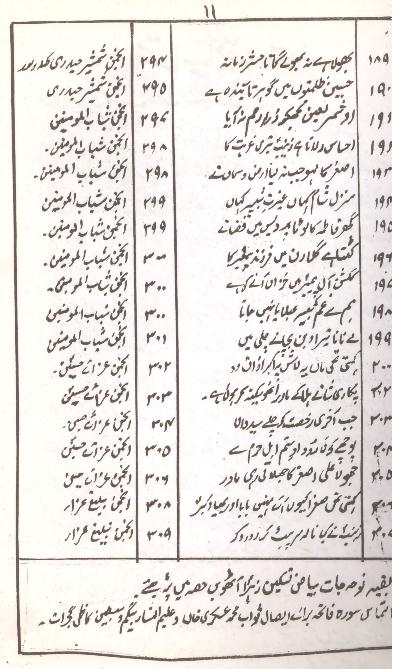 ۱۱
۱۸۹ بھولا ہے نہ بھولے گا تا حشر زمانہ ۲۹۴ انجمن شمشیر حیدری
۱۹۰ حسین ظلمتوں میں گوہر تابندہ ہے ۲۹۵ انجمن شمشیر حیدری
۱۹۱ او شمر لعین مجھکو ذرا رحم نہ آیا ۲۹۶ انجمن شباب المومنین
۱۹۲ احساس دلاتا ہے زینب تیری غربت کا ۲۹۸ انجمن شباب المومنین۔
۱۹۳ اصغر کا لہو جب نہ لیا ارض و سما نے ۲۹۸ انجمن شباب المومنین۔
۱۹۴ منزل شام کہاں عترت شبیر کہاں ۲۹۹ انجمن شباب المومنین
۱۹۵ گھر فاطمہ کا لوٹا پردیس میں قضا نے ۲۹۹ انجمن شباب المومنین۔
۱۹۶ کٹتا ہے گلا رن میں فرزند پیمبر کا ۳۰۰ انجمن شباب المومنین۔
۱۹۷ گلشن آل پیمبر میں خزاں آنے کو ہے ۳۰۰ انجمن شباب المومنین۔
۱۹۸ ہم سے غم شبیر بھلایا نہیں جاتا ۳۰۰ انجمن شباب المومنین
۱۹۹ نانا تیرا دین بچانے چلی میں ۳۰۱ انجمن شباب المومنین۔
۲۰۰ کہتی تھی ماں یہ لاش پر اکبر اذان دو ۳۰۲ انجمن عزائے حسینی۔
۲۰۲ پکاری شانے ہلا کے مادر اٹھو سکینہ سحر ہوئی ہے۔ ۳۰۳ انجمن عزائے حسینی
۲۰۳ جب آخری رخصت کو چلے سید والا ۳۰۴ انجمن عزائے حسینی۔
پوچھے کوئی درد و ستم اہل حرم سے ۳۰۵ انجمن عزائے حسینی
۲۰۵ جھولا علی اصغر کا جھلاتی رہی مادر ۳۰۶ انجمن عزائے حسینی
کہتی تھی صغرا کیوں آئے نہیں بابا اور بھیا اکبر ۳۰۸ انجمن تبلیغ عزا۔
زینب نے کیا نالہ سر پیٹ کر رو رو کے ۳۰۹ انجمن تبلیغ عزاء
بقیہ نوحہ جات بیاض تسکین زہرا آٹھویں حصہ میں پڑھیئے۔
التماس سورہ فاتحہ برائے ایصال ثواب محمد عسکری خان و علیم النساء بیگم و سبطین کاظمی گجرات۔